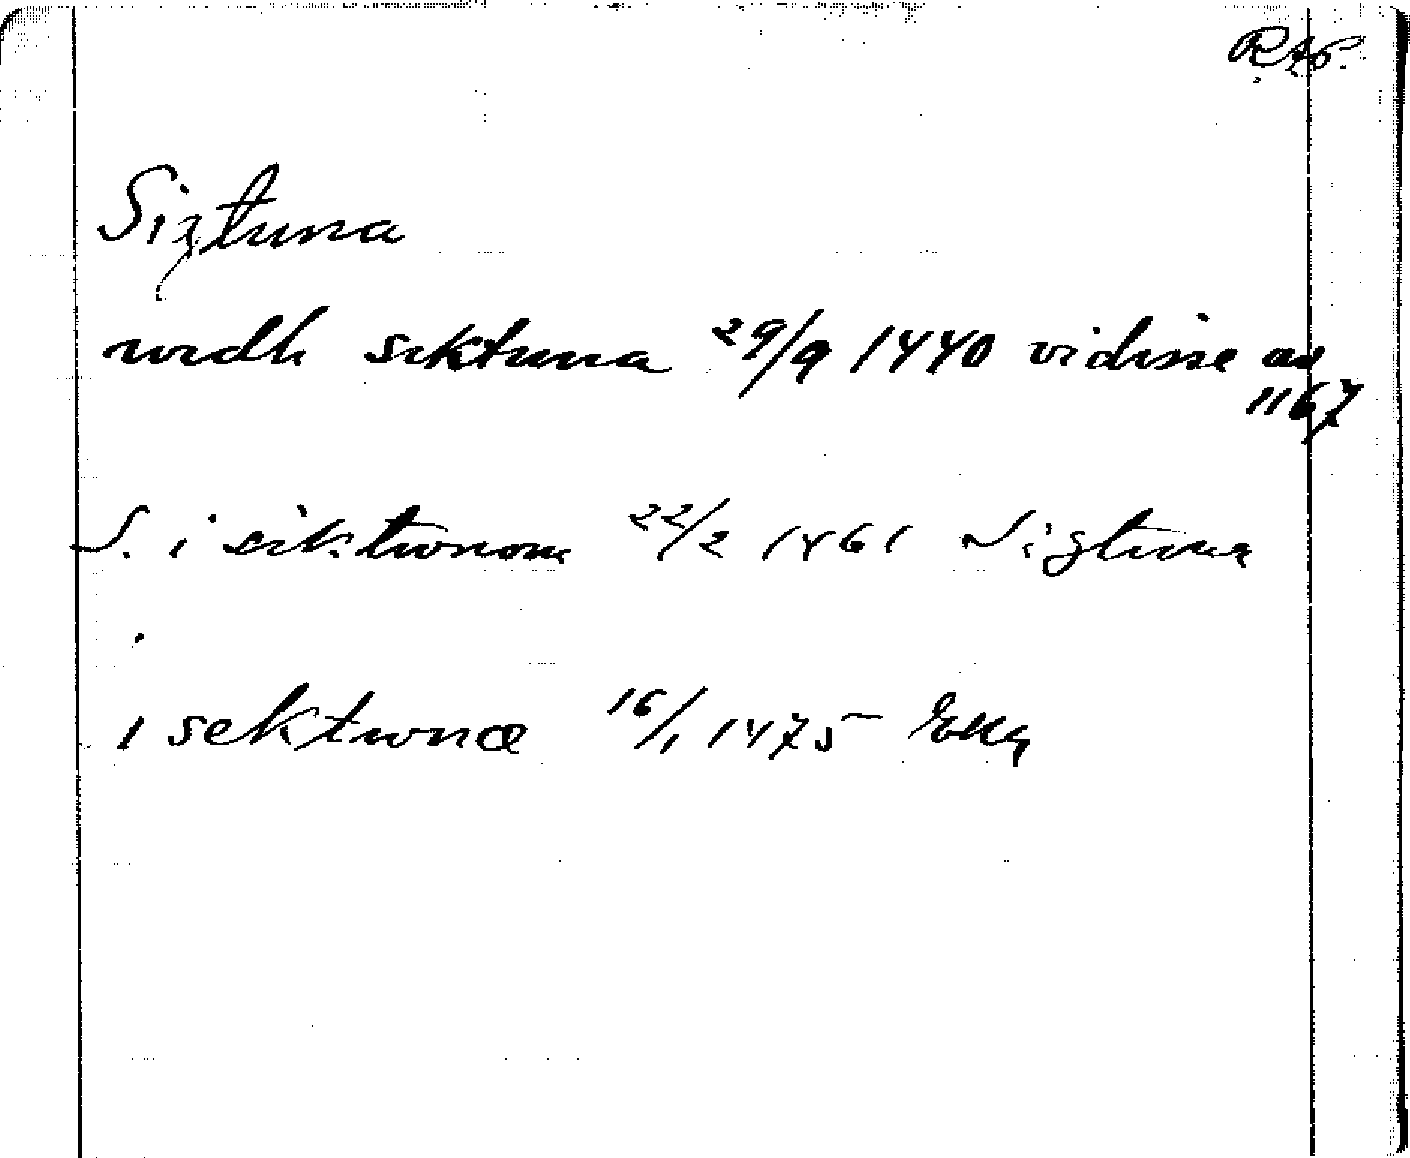 RAP.
Sigtuna
widh siktuna 29/9 1440 vidisse av
1167
S. i siktwnom 22/2 1461 Sigtuna
i sektwnæ 16/1 1475